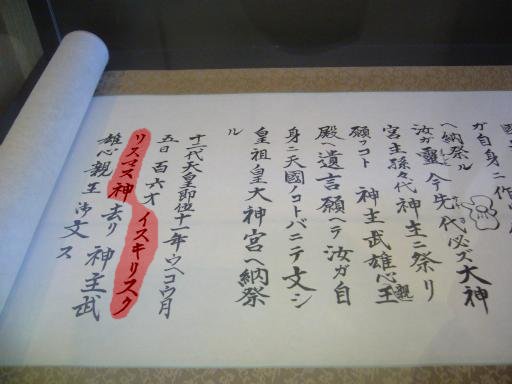 ガ自身ニ作
ヘ納祭ル
汝ガ靈 今 先代必ズ大神
宮主孫々代 神主ニ祭リ
願フコト 神主武雄心親王
殿ヘ遺言願ヘテ汝ガ自
身ニ天國ノコトバニテ文シ
皇祖皇大神宮ヘ納祭
ル
十一代天皇即位十一年ウヘコウ月
五日 百六才 イスキリスク
リスマス神 去リ 神主武
雄心親王 文ス